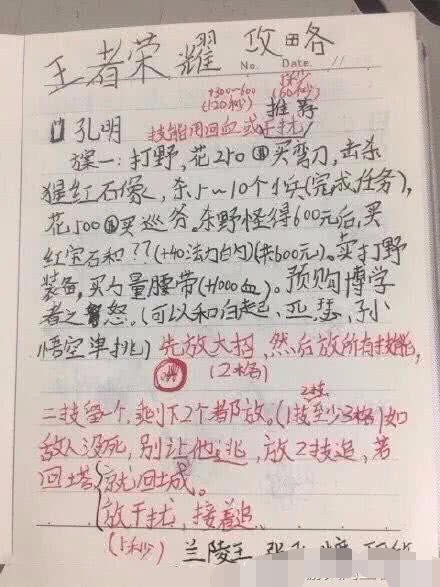 王者荣耀 攻略
No. Date. 11
+300~600 (120秒)
(60秒)
推荐
孔明 技能用回血或干扰
方案一:打野,花250买弯刀,击杀
猩红石像,杀5~10个小兵(完成任务),
花500买巡守。杀野怪得600元后,买
红宝石和??(+40法力以内)(共600元)。卖打野
装备,买力量腰带(+1000血)。预购博学
者之怒。(可以和白起、亚瑟、孙
悟空单挑)先放大招,然后放所有技能,
(2格)
二技留一个,剩下2个都放。(1技至少3格)如
2技
敌人没死,别让他逃,放2技追,若
回塔就回城。
放干扰,接着追
(5秒) 兰陵王